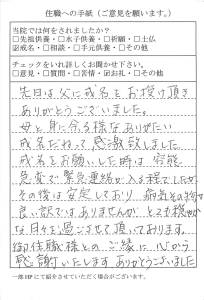 住職への手紙（ご意見を願います。）
当院では何をされましたか？
□先祖供養・□水子供養・□祈願・□土仏
☑戒名・□相談・□手元供養・□その他
チェックをいれ詳しくお聞かせ下さい。
□意見・□質問・□苦情・☑お礼・□その他
先日は父に戒名をお授け頂き
ありがとうございました。
母と共に今も様なありがたい
戒名だねって感激致しました
戒名をお願いした時は容態
急変で緊急連絡が入る程でしたが
その後は安定しており 病気その物は
良い訳ではありませんが とても穏やか
な日々を過ごさせて頂いております。
御住職様とのご縁に心から
感謝いたします ありがとうございました
一部HPにて紹介させていただく場合がございます。